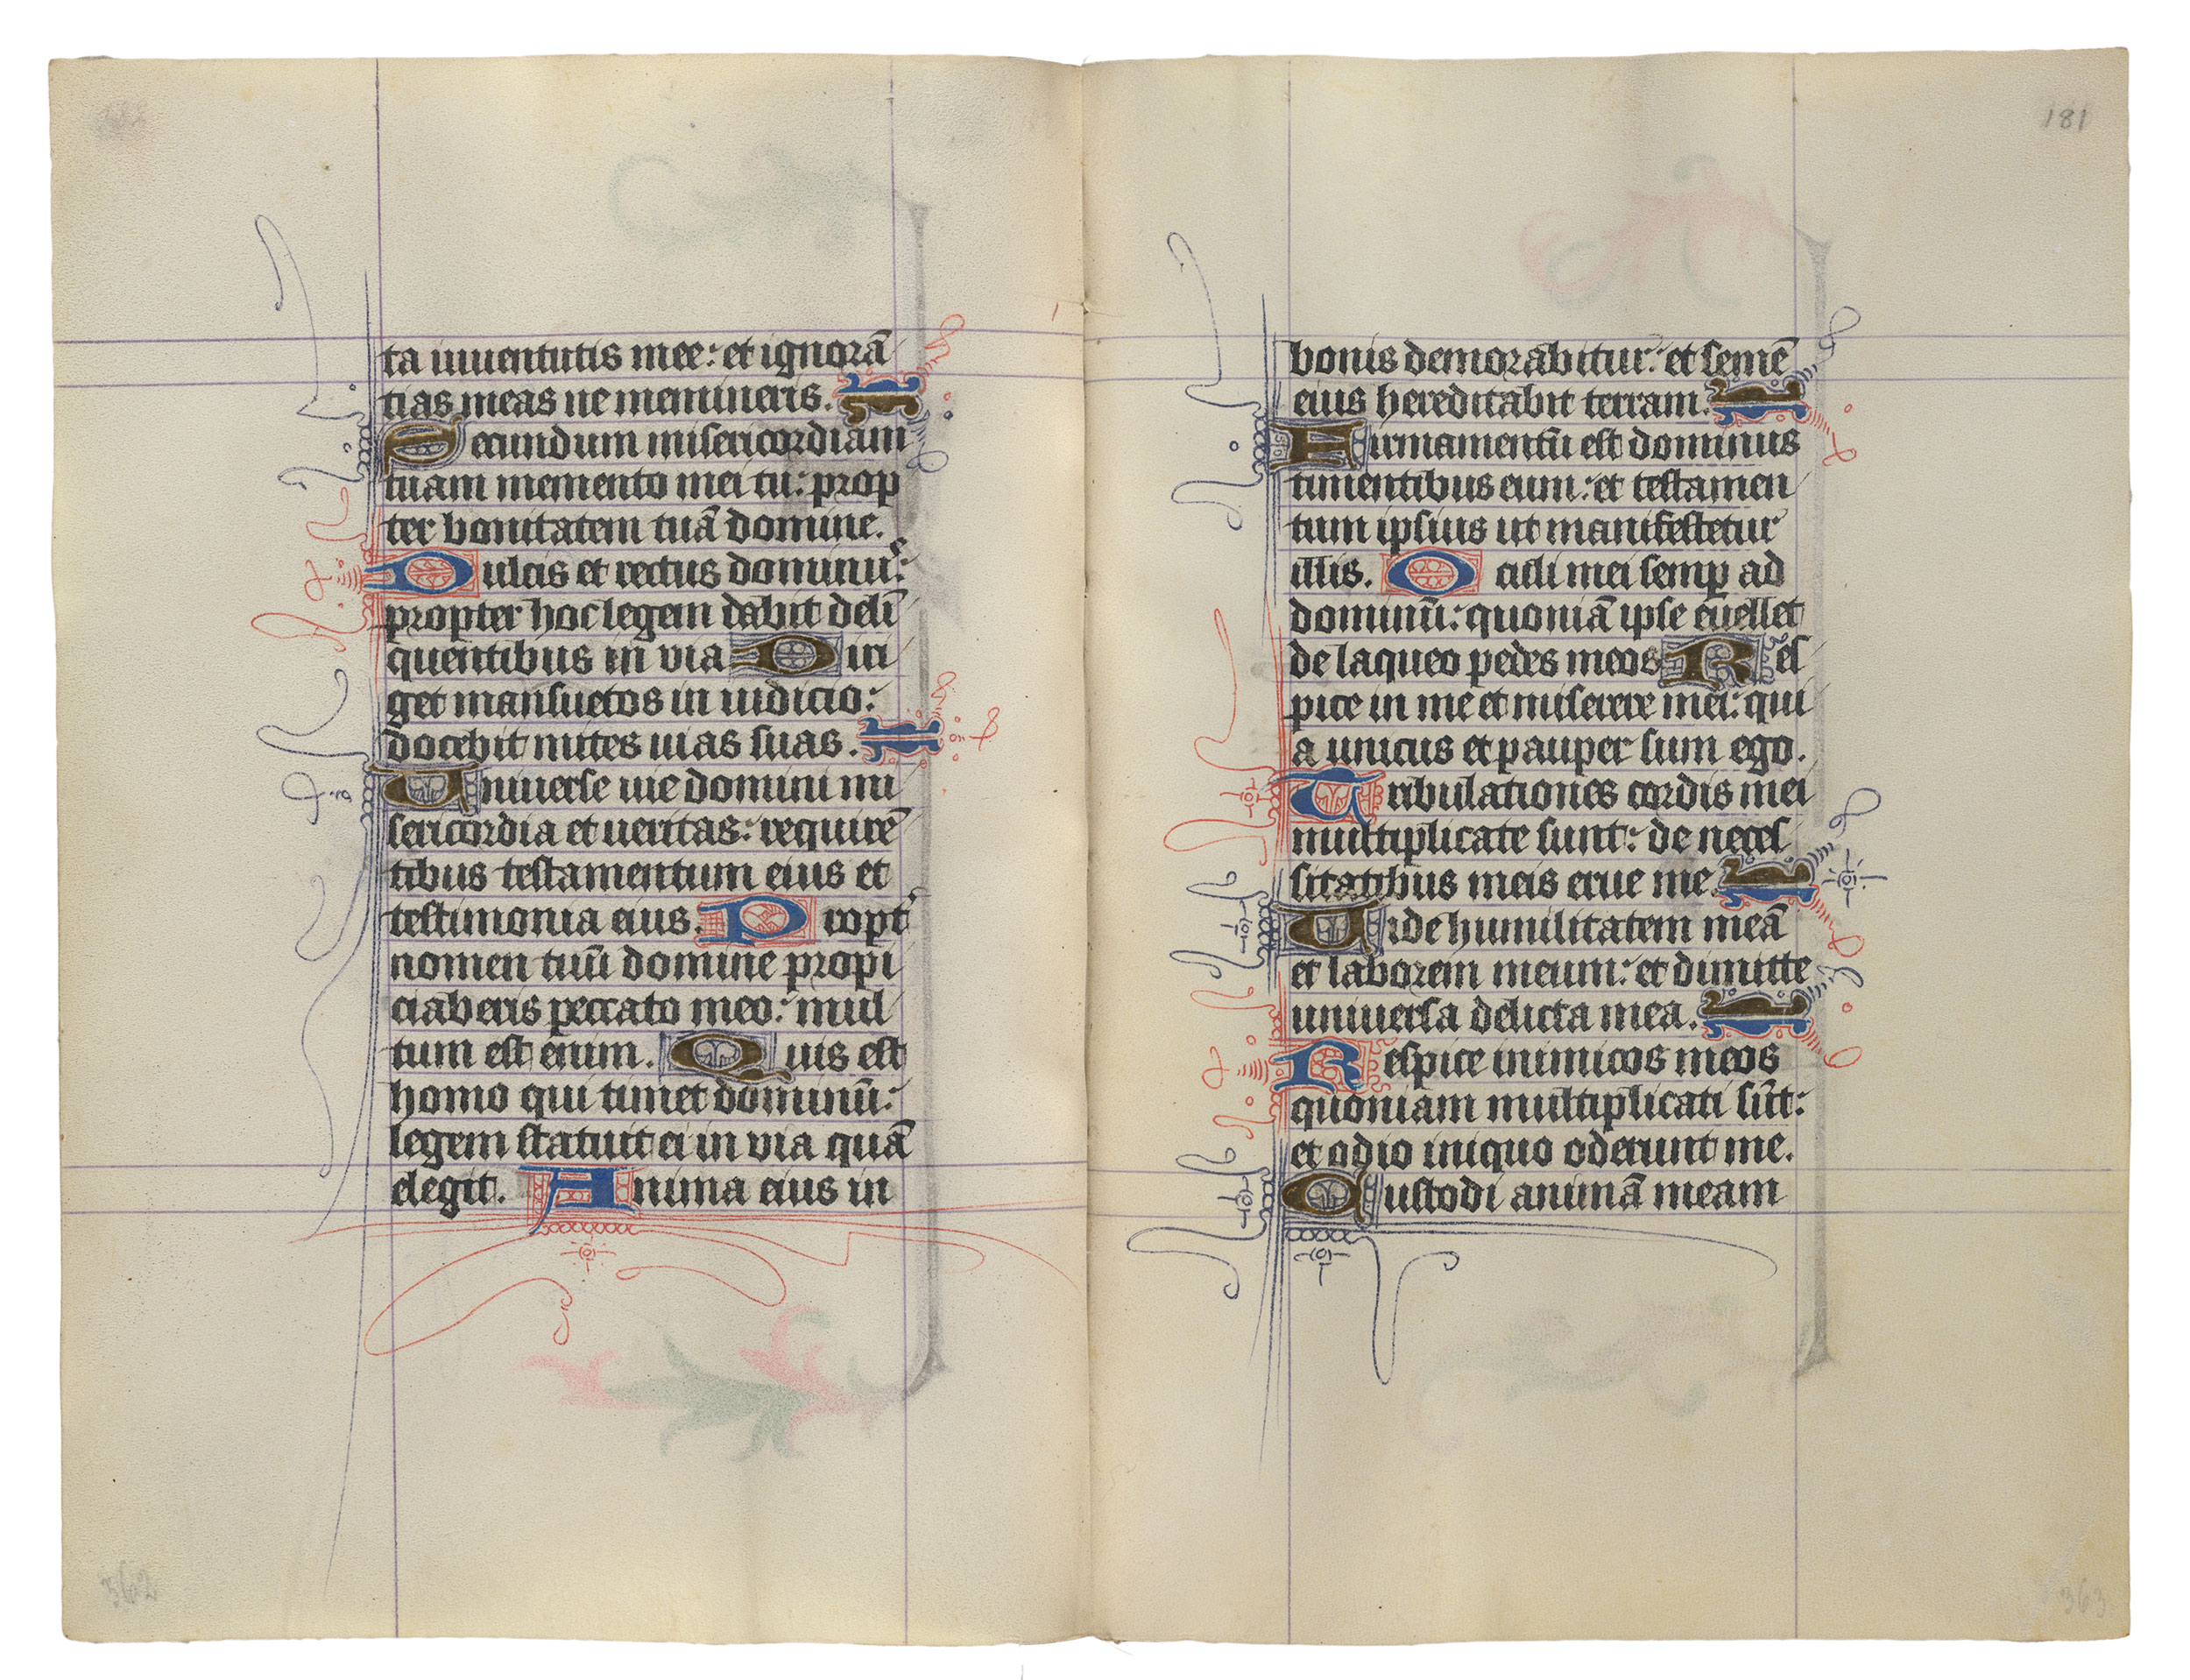 ta iuuentutis mee: et ignorā
tias meas ne memineris.
Secundum misericordiam
tuam memento mei tu: prop
ter bonitatem tuā domine.
Dulcis et rectus dominus:
propter hoc legem dabit delī
quentibus in via Diri
get mansuetos in iudicio:
docebit mites uias suas.
Uniuerse uie domini mi
sericordia et ueritas: requirē
tibus testamentum eius et
testimonia eius. Propt
nomen tuū domine propi
ciaberis peccato meo: mul
tum est enim. Quis est
homo qui timet dominū:
legem statuit ei in via quā
elegit. Anima eius in
362
181
bonis demorabitur: et semē
eius hereditabit terram.
Firmamentū est dominus
timentibus eum: et testamen
tum ipsius ut manifestetur
illis. Oculi mei semp ad
dominū: quoniā ipse euellet
de laqueo pedes meos Res
pice in me et miserere mei: qui
a unicus et pauper sum ego.
Tribulationes cordis mei
multiplicate sunt: de neces
sitatibus meis erue me
Uide humilitatem meā
et laborem meum: et dimitte
uniuersa delicta mea.
Respice inimicos meos
quoniam multiplicati sūt:
et odio iniquo oderunt me.
Custodi animā meam
363